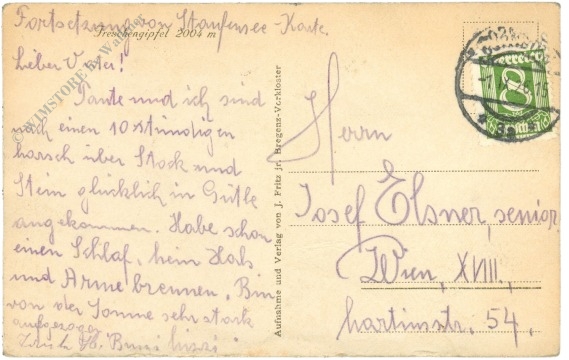 Fortsetzung von Staufensee-Karte.
Freschengipfel 2004 m
Lieber Vater!
Tante und ich sind
nach einen 10 stündigen
Marsch über Stock und
Stein glücklich in Gütle
angekommen. Habe schon
einen Schlaf, mein Hals
und Arme brennen. Bin
von der Sonne sehr stark
aufgezogen
Aufnahme und Verlag von J. Fritz jr. Bregenz-Vorkloster
Herrn
Josef Elsner, senior
Wien, XVIII.,
Martinstr. 54.
8
© WIMSTORE